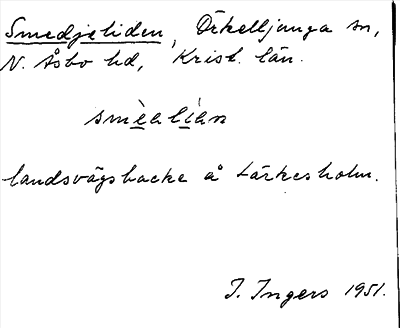 Smedjeliden, Örkelljunga sn,
N. Åsbo hd, Krist. län.
smèalían
landsvägsbacke å Lärkesholm.
I. Ingers 1951.